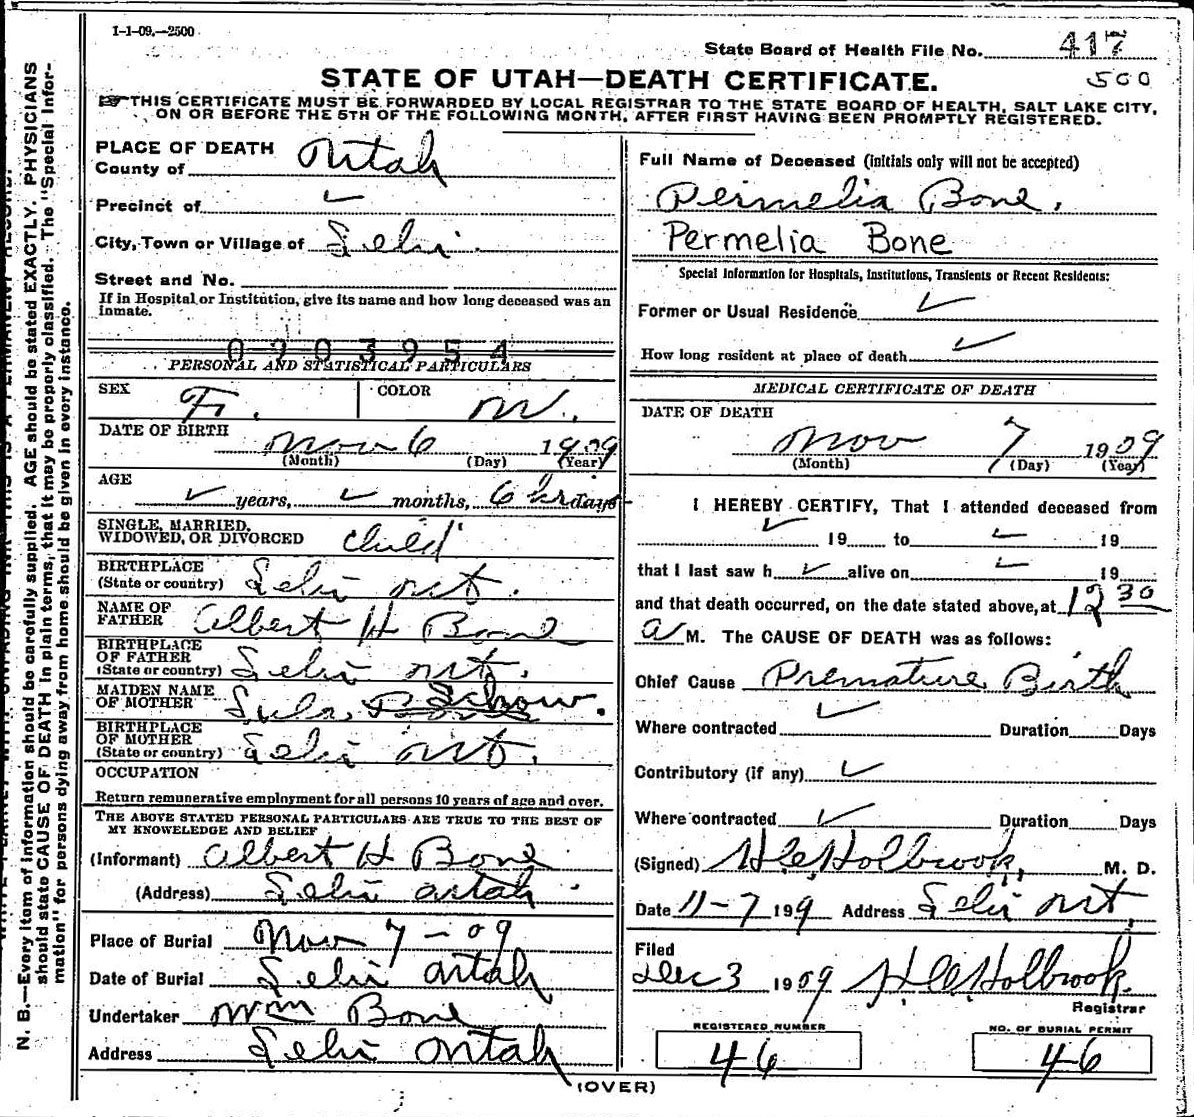 1-1-09.—2500
State Board of Health File No. 417
500
STATE OF UTAH—DEATH CERTIFICATE.
THIS CERTIFICATE MUST BE FORWARDED BY LOCAL REGISTRAR TO THE STATE BOARD OF HEALTH, SALT LAKE CITY,
ON OR BEFORE THE 5TH OF THE FOLLOWING MONTH, AFTER FIRST HAVING BEEN PROMPTLY REGISTERED.
PLACE OF DEATH
County of Utah
Precinct of ✓
City, Town or Village of Lehi
Street and No.
If in Hospital or Institution, give its name and how long deceased was an
inmate.
0203954
PERSONAL AND STATISTICAL PARTICULARS
SEX F. COLOR W.
DATE OF BIRTH Nov 6 1909
(Month) (Day) (Year)
AGE ✓ years, ✓ months, 6 hrs days
SINGLE, MARRIED,
WIDOWED, OR DIVORCED child
BIRTHPLACE
(State or country) Lehi Ut.
NAME OF
FATHER Albert H Bone
BIRTHPLACE
OF FATHER
(State or country) Lehi Ut.
MAIDEN NAME
OF MOTHER Lula Bone Schow.
BIRTHPLACE
OF MOTHER
(State or country) Lehi Ut.
OCCUPATION
Return remunerative employment for all persons 10 years of age and over.
THE ABOVE STATED PERSONAL PARTICULARS ARE TRUE TO THE BEST OF
MY KNOWELEDGE AND BELIEF
(Informant) Albert H Bone
(Address) Lehi Utah
Place of Burial Nov 7-09
Date of Burial Lehi Utah
Undertaker Wm Bone
Address Lehi Utah
Full Name of Deceased (initials only will not be accepted)
Permelia Bone.
Permelia Bone
Special Information for Hospitals, Institutions, Transients or Recent Residents:
Former or Usual Residence ✓
How long resident at place of death ✓
MEDICAL CERTIFICATE OF DEATH
DATE OF DEATH
Nov 7 1909
(Month) (Day) (Year)
I HEREBY CERTIFY, That I attended deceased from
✓ 19 to ✓ 19
that I last saw h ✓ alive on ✓ 19
and that death occurred, on the date stated above, at 12 30
a M. The CAUSE OF DEATH was as follows:
Chief Cause Premature Birth
Where contracted ✓ Duration Days
Contributory (if any) ✓
Where contracted ✓ Duration Days
(Signed) H Holbrook, M. D.
Date 11-7 199 Address Lehi Ut.
Filed
Dec 3 1909 H Holbrook
Registrar
REGISTERED NUMBER
46
NO. OF BURIAL PERMIT
46
(OVER)
N. B.—Every item of information should be carefully supplied. AGE should be stated EXACTLY. PHYSICIANS
should state CAUSE OF DEATH in plain terms, that it may be properly classified. The "Special Infor-
mation" for persons dying away from home should be given in every instance.